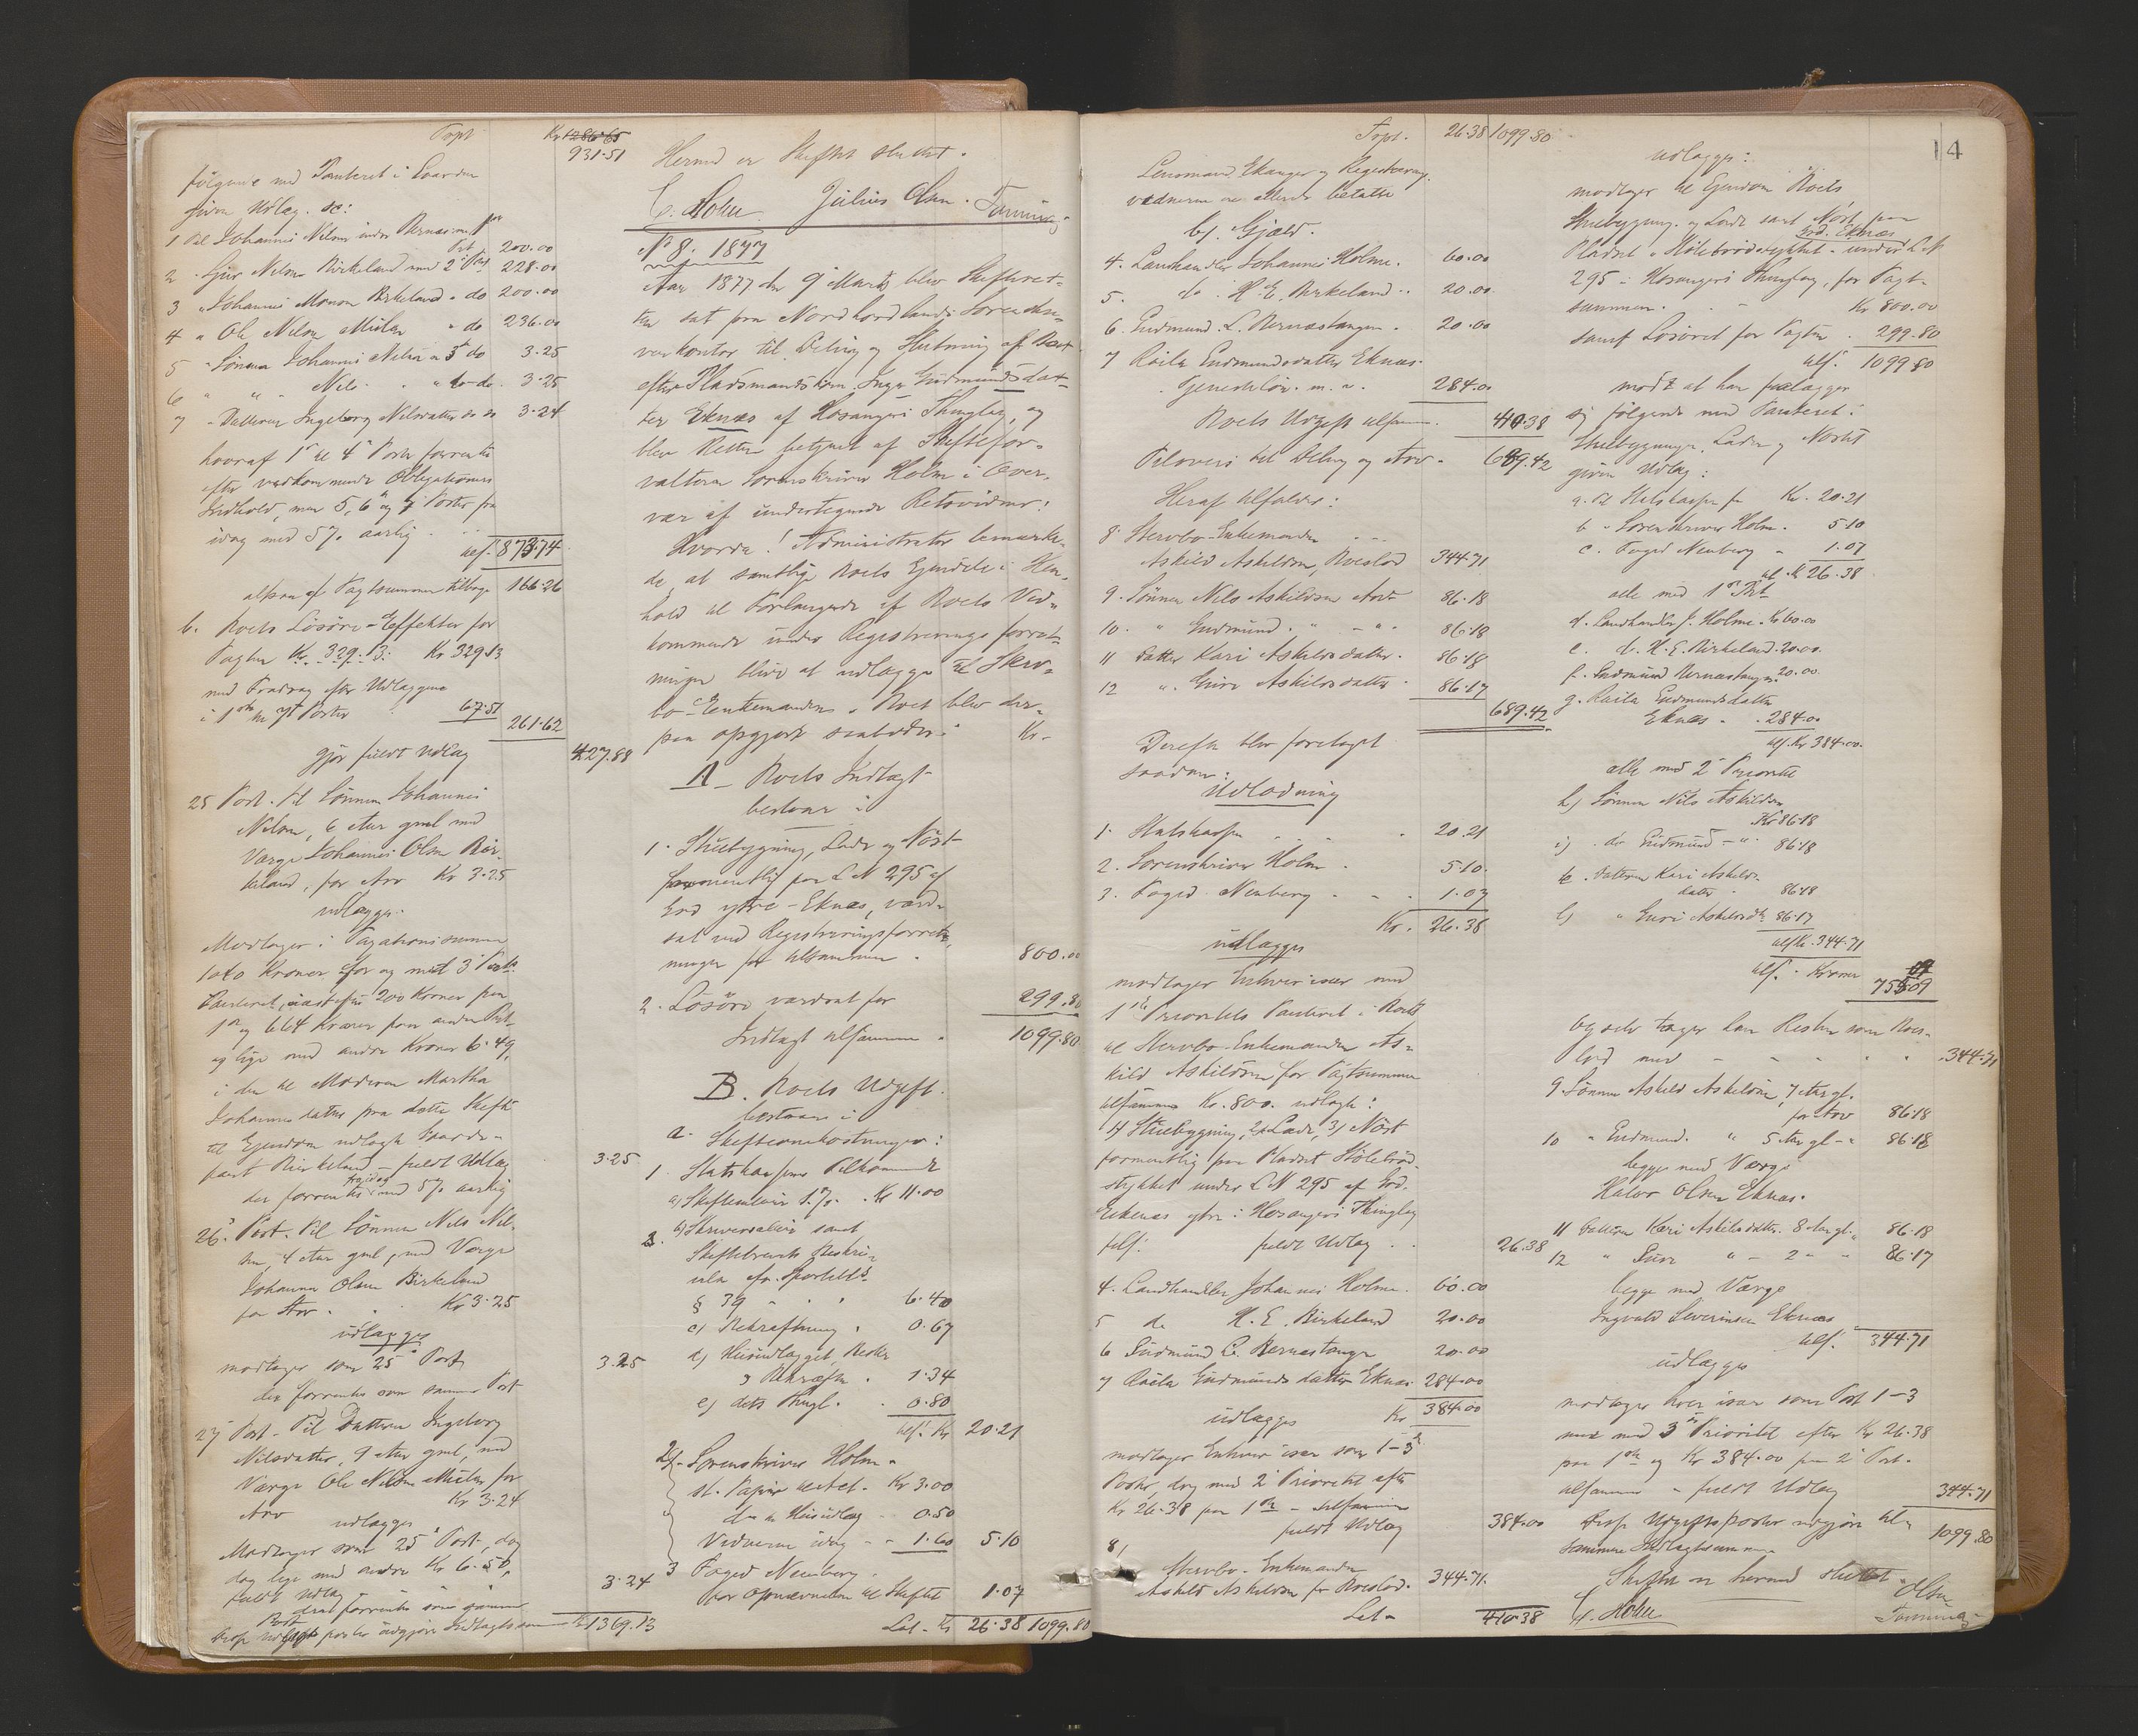 Trpt Kr 1286.65
931.51
følgende med Panteret i Gaarden
given Udlæg. sc:
1 Til Johannes Nilsen indre Bernæs m. 1ste
Prt 200.00
2 " Gjür Nilsen Birkeland med 2d Prt 228.00
3 " Johannes Monsen Birkeland " do 200.00
4 " Ole Nilsen Mielen " do 236.00
5 " Sønnen Johannes Nilsen " 3d do 3.25
6 " " Nils " " do 3.25
7 " Datteren Ingeborg Nilsdatter do do 3.24
hvoraf 1ste til 4de Poster forrentes
efter vedkommende Obligationers
Indhold, men 5, 6 og 7 Poster fra
idag med 5% aarlig
ials. 873.74
altsaa af Taxtsummen tilbage 166.26
b. Boets Løsøre-Effekter for
Taxten Kr. 329.13: Kr 329.13
med Fradrag efter Udlæggene
i 1ste til 7de Poster 67.51
261.62
gjør fuldt Udlæg 427.88
25 Post. Til Sønnen Johannes
Nilsen, 6 Aar gml med
Værge Johannes Olsen Bir-
keland, for Arv Kr 3.25
udlægges.
Modtager i Taxationssummen
1040 Kroner for og med 3de Priorts
Panteret, næstefter 200 Kroner paa
1ste og 664 Kroner paa anden Prt
og lige med andre Kroner 6.49,
i den til Moderen Martha
Johannesdatter paa dette Skifte
til Ejendom udlagte Gaards-
part Birkeland - fuldt Udlæg
der forrentes fra idag med 5% aarlig
3.25
26. Post. Til Sønnen Nils Nil-
sen, 4 Aar gml, med Værge
Johannes Olsen Birkeland
for Arv . . Kr 3.25
udlægges
modtager som 25de Post 3.25
der forrentes som samme Post
27 Post. Til Datteren Ingeborg
Nilsdatter, 9 Aar gml, med
Værge Ole Nilsen Mielen for
Arv Kr 3.24
udlægges
Modtager som 25de Post, dog
dog lige med andre Kr 6.50,
fuldt Udlæg 3.24
der forrentes som samme
Post
Disse Udgifts poster udgjøre Indtægtssum Kr 1369.13
Hermed er Skiftet sluttet.
C. Holm. Julius Olsen. Tanning.
No 8. 1877
Aar 1877 den 9de Marts blev Skifteret-
ten sat paa Nordhordlands Sorenskri-
verkontor til Deling og Slutning af Boet
efter Pladsmandskone Inger Gudmundsdat-
ter Eknæs af Hosangers Thinglag, og
blev Retten betjent af Skiftefor-
valteren Sorenskriver Holm i Over-
vær af undertegnede Retsvidner:
Hvorda! Administrator bemærke-
de, at samtlige Boets Ejendele i Hen-
hold til Forlangende af Boets Ved-
kommende under Registreringsforret-
ningen bliver at udlægge til Sterv-
bo-Enkemanden. Boet blev der-
paa opgjort saaledes: Kr.
A - Boets Indtægt
bestaar i
1. Stuebygning, Lade og Nøst
formentlig paa L N 295 af
Grd ytre-Eknæs, vurde-
rat ved Registreringsforret-
ningen for tilsammen . 800.00
2. Løsøre vurderat for 299.80
Indtægt tilsammen . 1099.80
B. Boets Udgift
bestaar i
a. Skifteomkostninger:
1. Statskassens Tilkommende
a) Skiftenævn 1.% . Kr 11.00
b) Skriversalær samt
Skiftebrevets Beskri-
velse efr. Sportellds
§ 39 . . . 6.40
c) Bekræftning . 0.67
d) Huusudlægget, Beskr
og Bekræftn . 1.34
e) dets Thingl. . 0.80
ials. Kr 20.21
2. Sorenskriver Holm -
st. Papir til Act. Kr 3.00
do til Huusudlæg . 0.50
Vidnerne idag - - 1.60 5.10
3 Foged Nenberg.
for Opnævnelsen til Skiftet 1.07
Lat. Kr 26.38 1099.80
14
Trpt. 26.38 1099.80
Lensmand Ekanger og Registrerings-
vidnerne ere allerede betalte
b). Gjæld.
4. Landhandler Johannes Holme. 60.00
5. do . H. E. Birkeland . 20.00
6. Gudmund L. Bernæstangen . 20.00
7 Raila Gudmundsdatter Eknæs
Tjenesteløn. m. v. 284.00
Boets Udgift tilsammen . 410.38
Tilovers til Deling og Arv . 689.42
Heraf tilfalder:
8. Stervbo-Enkemanden - - -
Askild Askildsen, Boeslod 344.71
9. Sønnen Nils Askildsen Arv 86.18
10. " Gudmund . " - " - 86.18
11 Datter Kari Askildsdatter . 86.18
12 " . Guro Askildsdatter . 86.17
689.42
Derefter blev foretaget
saadan:
Udlodning
1. Statskassen . . . . 20.21
2. Sorenskriver Holm . 5.10.
3. Foged Nenberg . - - . 1.07
Kr. 26.38
udlægges
modtager Enhver især med
1ste Prioritets Panteret i Boets
til Stervbo-Enkemanden As-
kild Askildsen for Taxtsummen
tilsammen Kr. 800. udlagte:
1) Stuebygning, 2) Lade, 3) Nøst
formentlig paa Pladset Stølebrød-
stykket under L N 295 af Grd.
Eknæs ytre i Hosangers Thinglag
tils. fuldt Udlæg . . 26.38
4. Landhandler Johannes Holme . 60.00
5 do H. E. Birkeland 20.00
6 Gudmund L. Bernæstangen 20.00
7 Raila Gudmundsdatter Eknæs 284.00
udlægges Kr 384.00
modtager Enhver især som 1-3de
Poster, dog med 2den Prioritet efter
Kr 26.38 paa 1ste - tilsammen
fuldt Udlæg 384.00
8/
Stervbo-Enkemanden
Askild Askildsen for Boeslod. 344.71.
Lat - 410.38
udlægges:
modtager til Ejendom Boets
Stuebygning og Lade samt Nøst paa
Grd. Eknæs
Pladset "Stølebrødstykket" under L N
295 i Hosangers Thinglag, for Taxt-
summen . . - Kr 800.00
samt Løsøret for Taxten . 299.80
tils. 1099.80
mod at han paalægger
sig følgende med Panteret i
Stuebygningen, Laden og Nøstet
given Udlæg:
a. til Statskassen for Kr. 20.21
b. " Sorenskriver Holm . 5.10
c. Foged Nenberg " 1.07
tils. Kr 26.38
alle med 1ste Prt
d. Landhandler J. Holme. Kr 60.00
e. do. H. E. Birkeland. 20.00.
f. Gudmund Bernæstangen. 20.00
g. Raila Gudmundsdatter
Eknæs . . 284.00
tils. Kr 384.00.
alle med 2den Prioritet
h) Sønnen Nils Askildsen
Kr 86.18
i) . do Gudmund - " . 86.18
k . Datteren Kari Askilds-
datter . 86.18
l) " Guro Askildsdtr 86.17
tils Kr. 344.71
tils. - Kroner 755.09
Og selv tager han Resten som Boes-
lod med - - - - . . 344.71
9. Sønnen Askild Askildsen, 7 Aar gl.
for Arv 86.18
10 " Gudmund. " 5 Aar gl - " 86.18
begge med Værge
Halvor Olsen Eknæs.
11 Datteren Kari Askildsdatter. 8 Aar gl. " 86.18
12 " Guro " - 2 " - 86.17
begge med Værge
Ingvald Severinsen Eknæs
tils. 344.71
udlægges
modtager hver især som Post 1-3
men med 3die Prioritet efter Kr 26.38
paa 1ste og Kr 384.00 paa 2den Prt.
tilsammen - fuldt Udlæg 344.71
Disse Udgiftsposter udgjøre til-
sammen Indtægtssummen 1099.80
Skiftet er hermed sluttet.
C. Holm Olsen
Tanning.